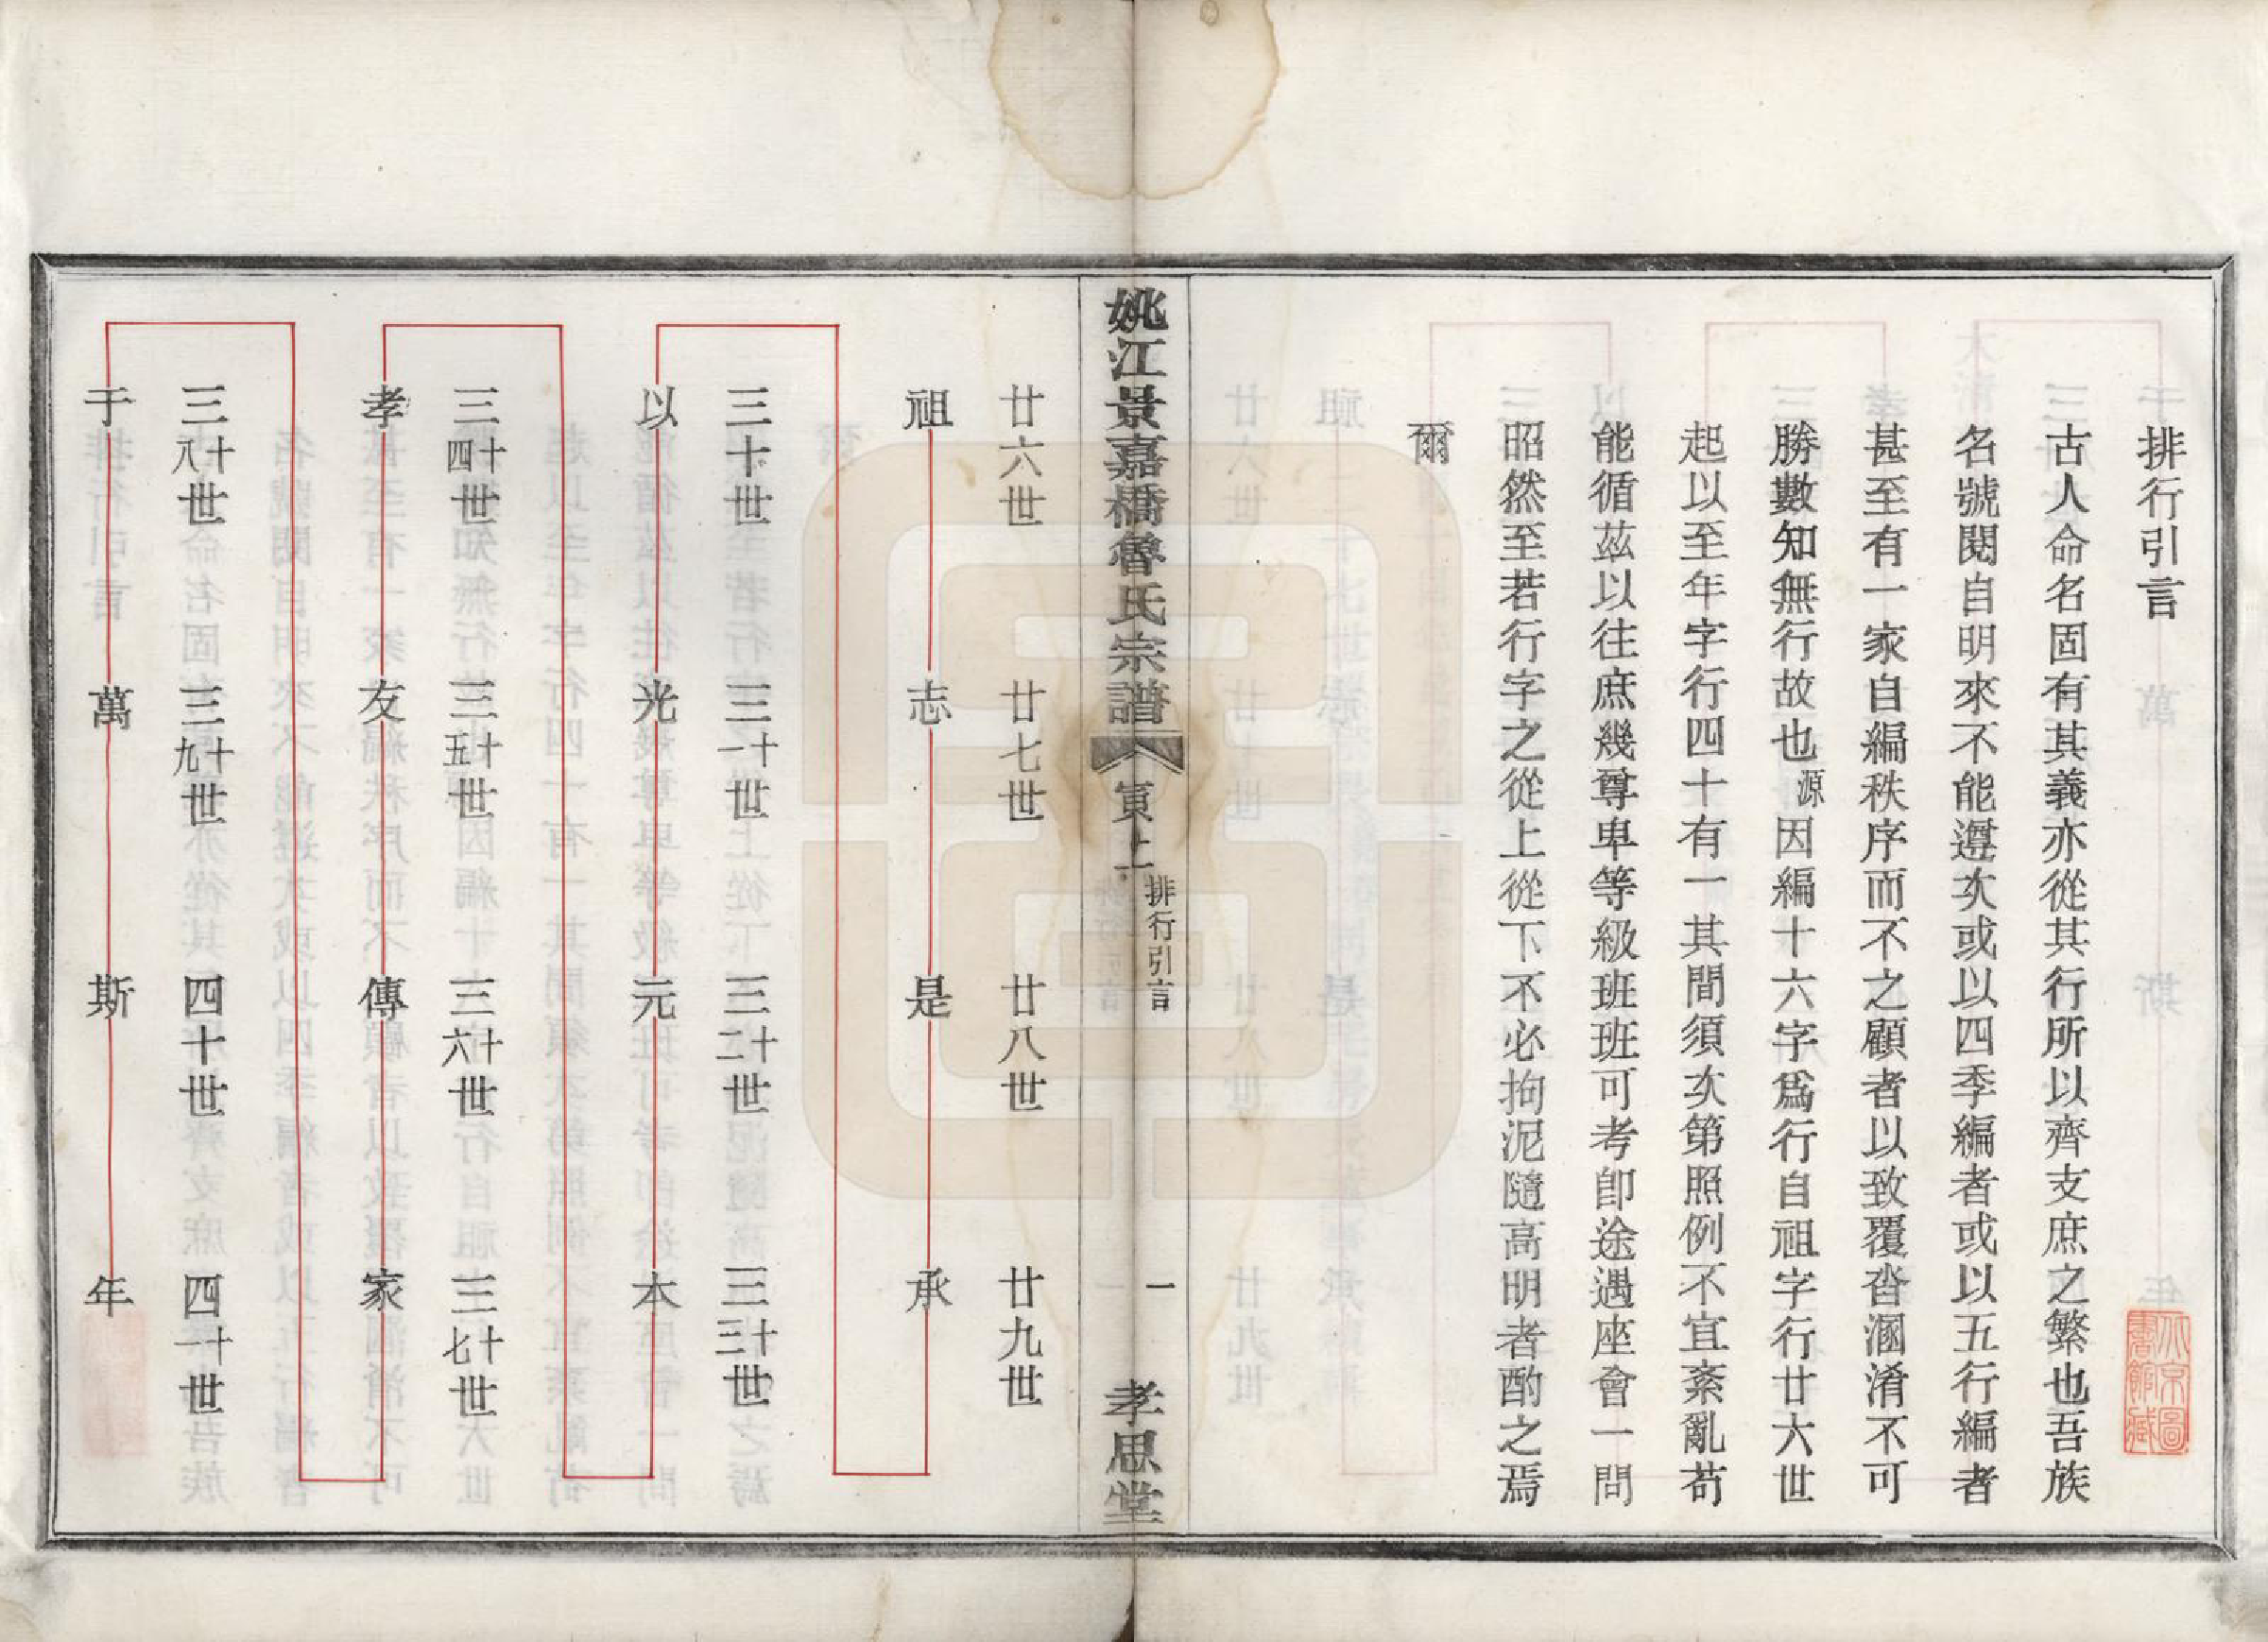 排行引言
古人命名固有其義亦從其行所以齊支庶之繁也吾族
名號閱自明來不能遵次或以四季編者或以五行編者
甚至有一家自編秩序而不之顧者以致覆沓溷淆不可
勝數知無行故也源因編十六字爲行自祖字行廿六世
起以至年字行四十有一其間須次第照例不宜紊亂苟
能循茲以往庶幾尊卑等級班班可考卽途遇座會一問
昭然至若行字之從上從下不必拘泥隨高明者酌之焉
爾
北京圖
書館藏
姚江景嘉橋魯氏宗譜
寅上
排行引言
一
孝思堂
廿六世 廿七世 廿八世 廿九世
祖 志 是 承
三十世 三十一世 三十二世 三十三世
以 光 元 本
三十四世 三十五世 三十六世 三十七世
孝 友 傳 家
三十八世 三十九世 四十世 四十一世
于 萬 斯 年